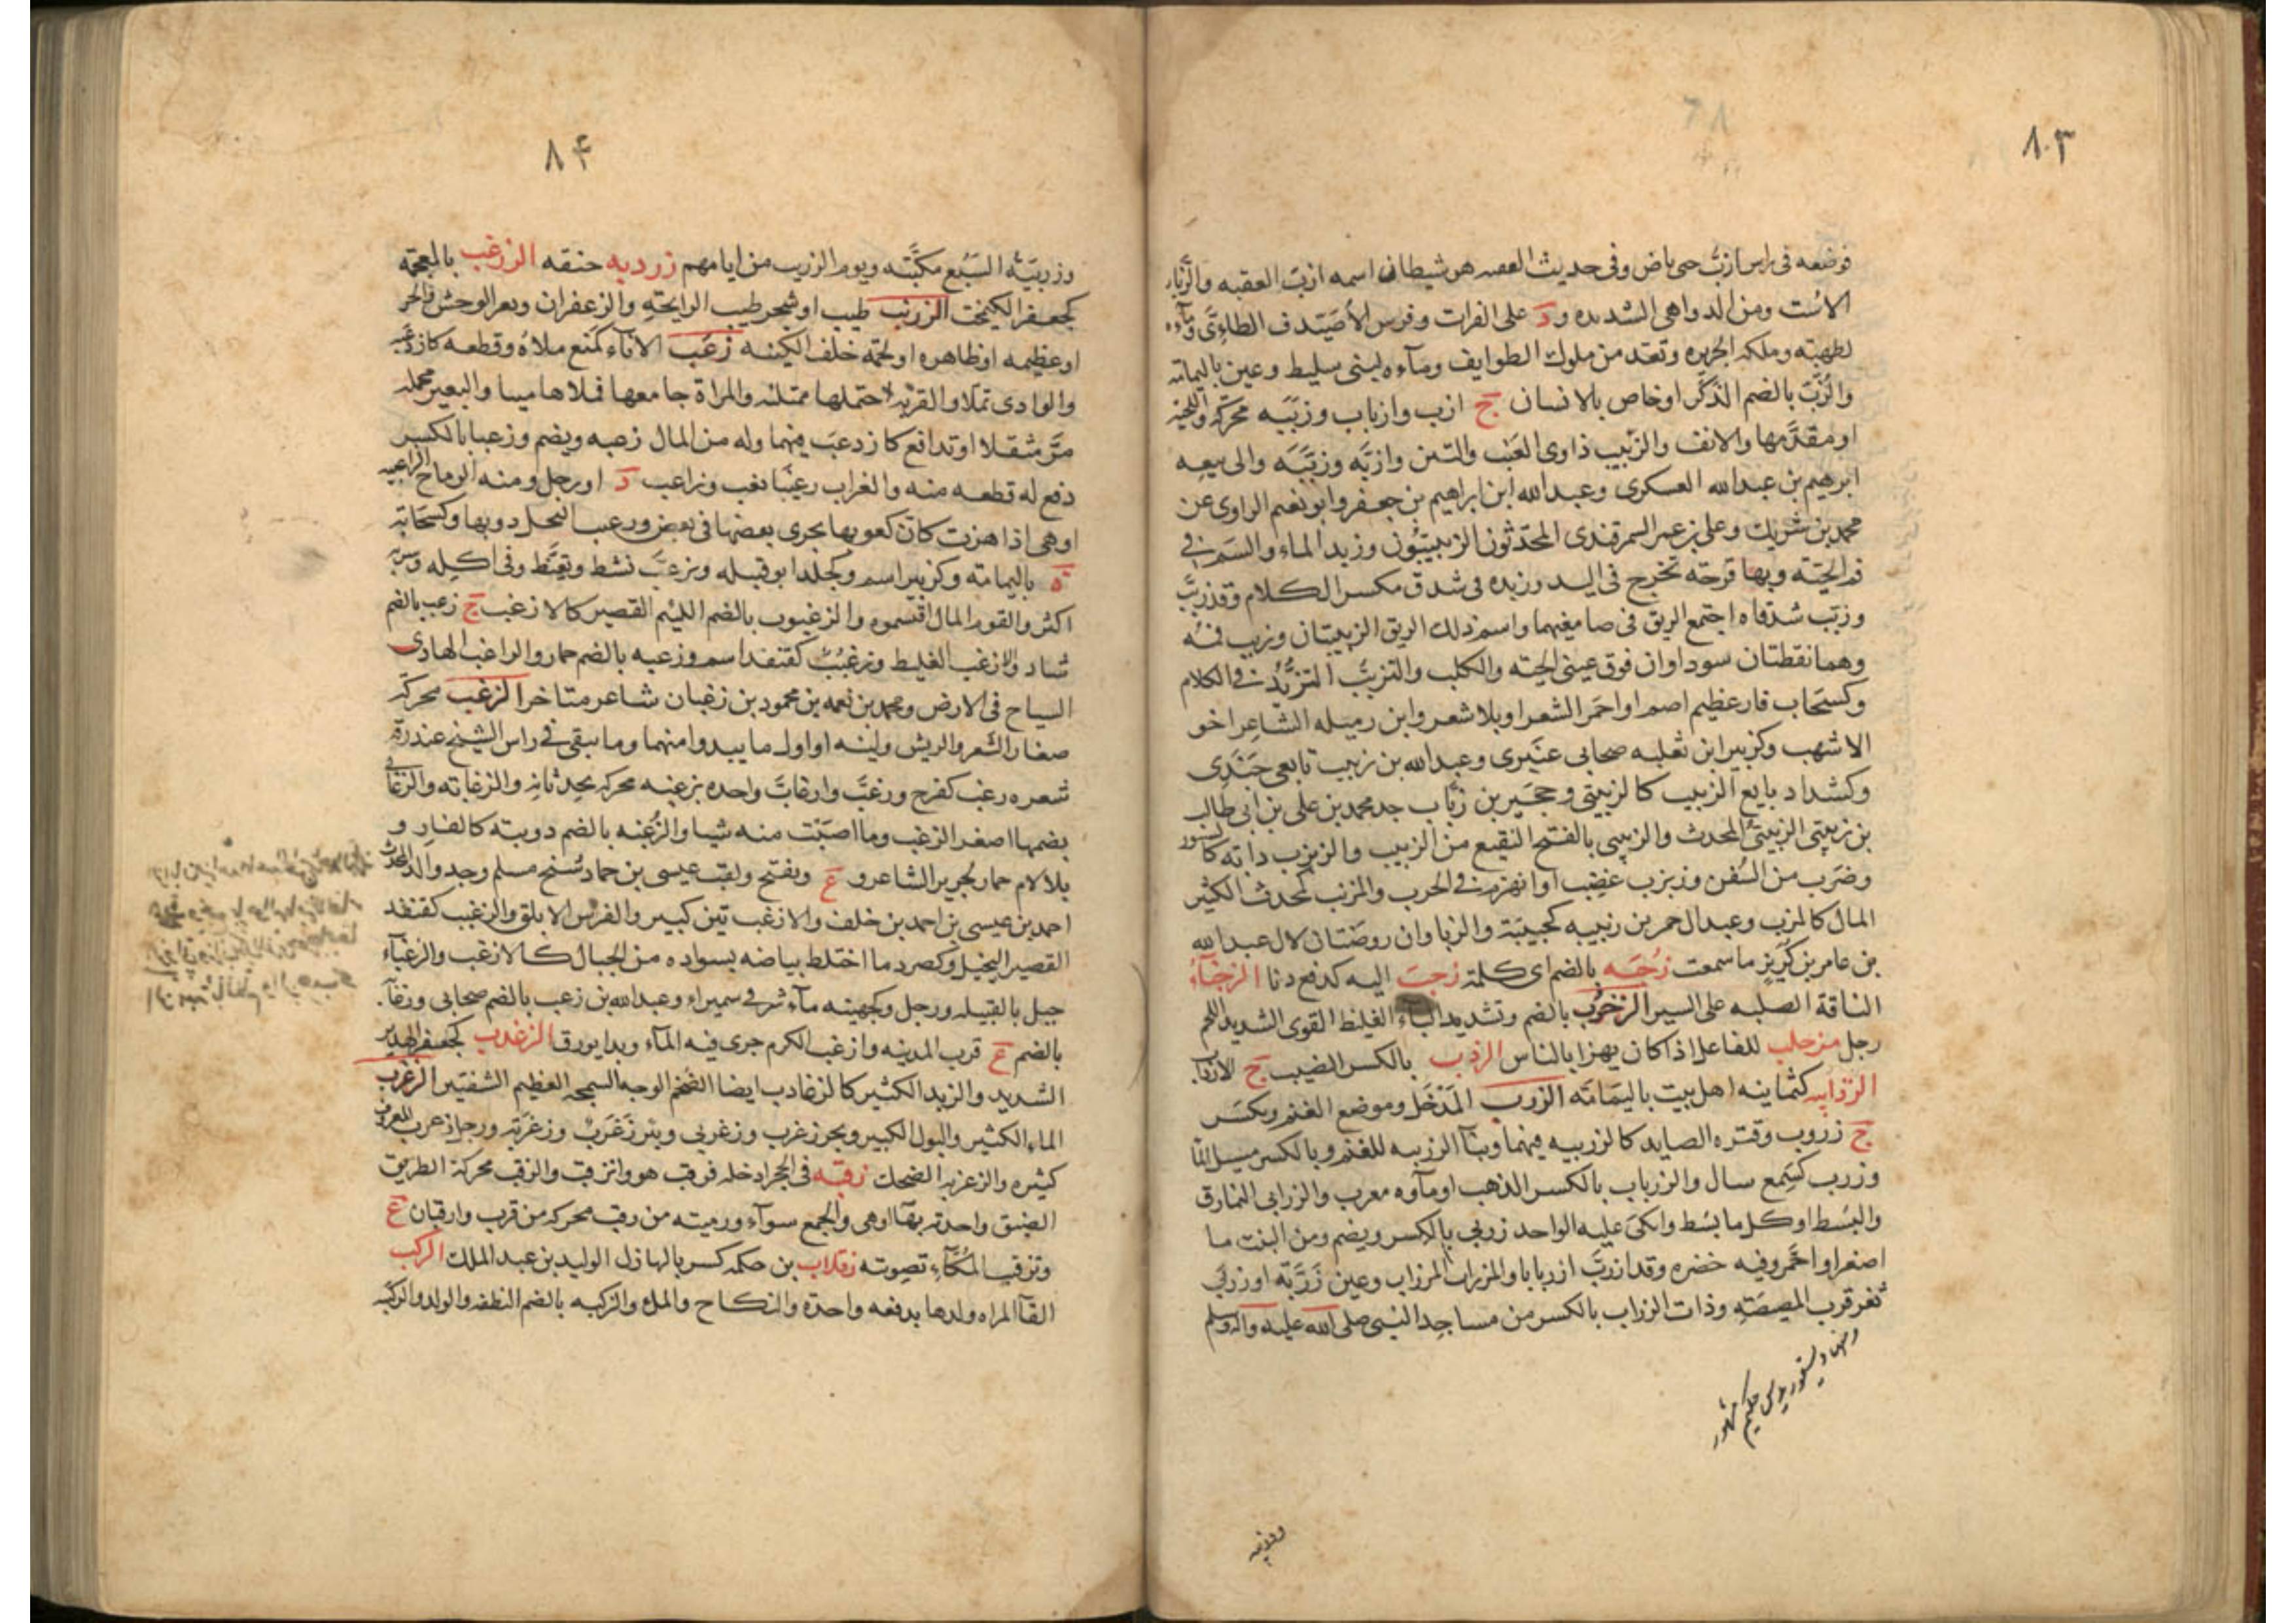 ٨٣
فوضعه فى راس ازبّ حى باض وفى حديث العقبه هو شيطان اسمه ازبّ العقبه والزّبّاء
الاست ومن الدواهى الشديده و د على الفرات وفرس الاصيدف الطاءىّ وماءه
لطهيّه وملكه الجزيره وتعد من ملوك الطوايف وماءه لبنى سليط وعين باليمامه
والزُّبّ بالضم الذَّكَر او خاص بالانسان ج ازب وازباب وزببه محركه واللحيه
او مقدَّمها والانف والزبيب ذاوى العنب والتين وازبَّه وزبَّبَه والى بيعه
ابرهيم بن عبدالله العسكرى وعبدالله ابن ابراهيم بن جعفر وابو نعيم الراوى عن
محمد بن شريك وعلى بن عمر السمرقندى المحدّثون الزبيبيّون وزبد الماء والسَم فى
فم الحيّه وبها قرحه تخرج فى اليد وزبده فى شدق مكسر الكلام وقد زبّب
وزبّب شدقاه اجتمع الريق فى صامغيهما واسم ذلك الريق الزبيبتان وزبب فمُه
وهما نقطتان سوداوان فوق عينى الحيّه والكلب والتزبّب التزبُّد فى الكلام
وكسَحَاب فار عظيم اصم او احمَر الشعر او بلا شعر وابن رميله الشاعر اخو
الاشهب وكزبير ابن ثعلبه صحابى عنبرى وعبدالله بن زبيب تابعى جَنَدى
وكشداد بايع الزبيب كالزبيبى وحجَير بن زبّاب جد محمد بن على بن ابى طالب
بن زبيبى الزبيبىُّ المحدث والزبيبى بالفتح النقيع من الزبيب والزبزب دابه كالسنور
وضَرب من السُفن وزبزب غضِب او انهزم فى الحرب والمزبّب كمحدث الكثير
المال كالمزب وعبدالرحمن بن زبيبه كجبينة والزباوان روضتان لال عبدالله
بن عامر بن كُرَيز ما سمعت زُجبَه بالضم اى كلمة زحبَ اليه كدفع دنا الزخباءُ
الناقة الصلبه على السير الزخزُبّ بالضم وتشديد الباء الغليظ القوى الشديد اللحم
رجل مزحلب للفاعل اذا كان يهزا بالناس الزدب بالكسر النصيب ج الازداب
الزرابيه كثمانيه اهل بيت باليمامَه الزرب المَدْخَل وموضع الغنم ويكسَر
ج زروب وقتره الصايد كالزريبه فيهما وبناء الزريبه للغنم وبالكسر مسيل الماء
وزرب كسَمع سال والزرباب بالكسر الذهب او ماؤه معرب والزرابى النمارق
والبسُط او كل ما بسُط واتكئَ عليه الواحد زربى بالكسر ويضم ومن النبت ما
اصفر او احمَرّ وفيه خضره وقد ازربّ ازربابا والمزراب المرزاب وعين زَرَبه او زربى
ثغر قرب المصيصَة وذات الزراب بالكسر من مساجد النبى صلى الله عليه واله وسلم
وزربيه
٨۴
وزربيّه السبُع مكتنّه ويوم الزريب من ايامهم زردبه خنقه الزرغب بالمعجمة
كجعفر الكيمخت الزرنب طيب او شجر طيب الرايحة والزعفران وبعر الوحش والحر
او عظيمه او ظاهره او لحمة خلف الكينه زعَب الاناء كمنع ملاه وقطعه كازدعبه
والوادى تملا والقربه احتملها ممتلئه والمراة جامعها فملاها منيا والبعير بحمله
مَرّ مثقلا او تدافع كازدعبَ فيهما وله من المال زعبه ويضم وزعبا بالكسر
دفع له قطعه منه والغراب زعيبا نعب وزاعب د او رجل ومنه الرماح الزاعبيه
او هى اذا هزت كان كعوبها يجرى بعضها فى بعض وزعيب النحل دويها وكسَحَابه
ة باليمامه وكزبير اسم وتزعّبَ نشط وتغيّظ وفى اكله وشربه
اكثر والقوم المال اقتسموه والزعبوب بالضم اللئيم القصير كالازعب ج زعب بالضم
شاذ والازعب الغليظ وزعبُب كقنفذ اسم وزعبه بالضم حمار والزاعب الهادى
السياح فى الارض ومحمد بن نعمه بن محمود بن زعبان شاعر متاخر الزغب محركه
صغار الشعر والريش ولينه او اول ما يبدو منهما وما يبقى فى راس الشيخ عند رقة
شعره زغب كفرح وزغّبَ وازغابّ واحده بزغبه محركه بحدثانه والزغابه والزغابى
بضمهما اصغر الزغب وما اصَبْت منه شيا والزُغبه بالضم دويبه كالفار و
بلا لام حمار لجرير الشاعر و ع ويفتح ولقب عيسى بن حماد شيخ مسلم وجد والد المحدث
احمد بن عيسى بن احمد بن خلف والازغب تين كبير والفرس الابلق والزغبب كقنفذ
القصير البخيل وكصرد ما اختلط بياضه بسواده من الجبال كالازغب والزغباء
جبل بالقبيله ورجل وكجهينه ماء شرقى سميراء وعبدالله بن زغب بالضم صحابى وزغاب
بالضم ع قرب المدينه وازغب الكرم جرى فيه الماء وبدا يورق الزغدب كجعفر الهدير
الشديد والزبد الكثير كالزغادب ايضا الضخم الوجه السمجه العظيم الشفتين الزغرب
الماء الكثير والبول الكبير وبحر زغرب وزغربى وبئر زَغرَبْ وزغربَة ورجل زغرب المعروف
كثيره والزغربه الضحك زقبه فى الجحر ادخله فزقب هو وانزقب والزقب محركة الطريق
الضيق واحدته بهاء او هى والجمع سواء ورميته من زقب محركه من قرب وازقبان ع
وتزقيب المُكَّاء تصويته زقلاب بن حكمه كسربال هازل الوليد بن عبد الملك الزكب
القاء المراه ولدها بدفعه واحدة والنكاح والملء والزكبه بالضم النطفه والولد والزكبه